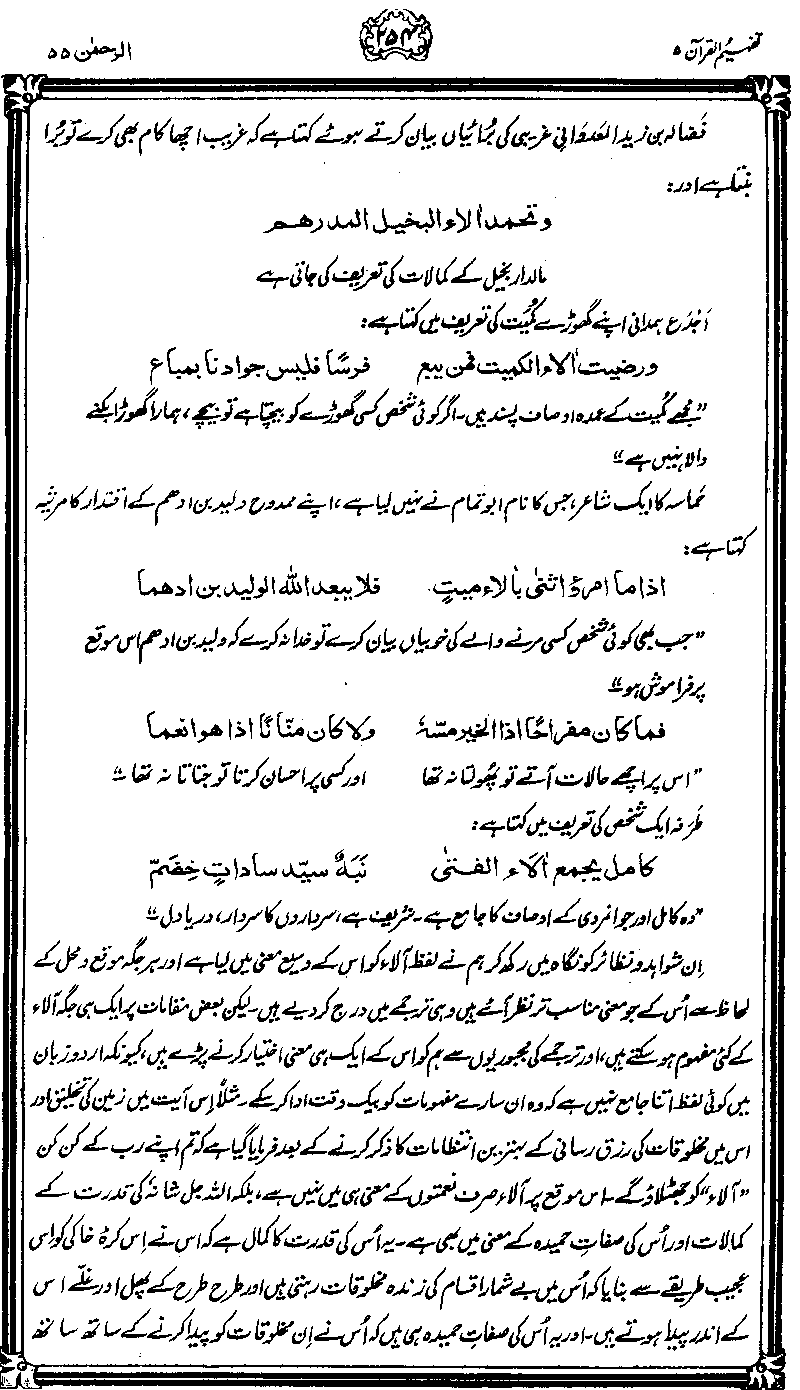 تفہیم القرآن ۵
۲۵۴
الرحمٰن ۵۵
فَضالہ بن زید العَدوَانی غریبی کی بُرائیاں بیان کرتے ہوئے کہتا ہے کہ غریب اچھا کام بھی کرے تو بُرا
بنتا ہے اور:
وتحمد اٰلاء البخیل المدرھم
مالدار بخیل کے کمالات کی تعریف کی جاتی ہے
اَجْدَع ہمدانی اپنے گھوڑے کُمَیت کی تعریف میں کہتا ہے:
ورضیت اٰلاء الکمیت فمن یبع فرسًا فلیس جوادنا بمباع
”مجھے کُمیت کے عمدہ اوصاف پسند ہیں۔ اگر کوئی شخص کسی گھوڑے کو بیچتا ہے تو بیچے، ہمارا گھوڑا بکنے
والا نہیں ہے“
حُماسہ کا ایک شاعر، جس کا نام ابو تمام نے نہیں لیا ہے، اپنے ممدوح ولید بن ادھم کے اقتدار کا مرثیہ
کہتا ہے:
اذا ما امرؤ اثنیٰ باٰلاء میتٍ فلا یبعد اللہ الولید بن ادھما
”جب بھی کوئی شخص کسی مرنے والے کی خوبیاں بیان کرے تو خدا نہ کرے کہ ولید بن ادھم اس موقع
پر فراموش ہو“
فما کان مفراحًا اذا الخیر مسّہٗ ولا کان منّانًا اذا ھو انعما
”اس پر اچھے حالات آتے تو پھُولتا نہ تھا اور کسی پر احسان کرتا تو جتاتا نہ تھا“
طَرَفہ ایک شخص کی تعریف میں کہتا ہے:
کامل یجمع اٰلاء الفتیٰ نَبَہٌ سیّد ساداتٍ خِضَمّ
”وہ کامل اور جوانمردی کے اوصاف کا جامع ہے۔ شریف ہے، سرداروں کا سردار، دریا دل“
اِن شواہد و نظائر کو نگاہ میں رکھ کر ہم نے لفظ آلاء کو اس کے وسیع معنی میں لیا ہے اور ہر جگہ موقع و محل کے
لحاظ سے اُس کے جو معنی مناسب تر نظر آئے ہیں وہی ترجمے میں درج کر دیے ہیں۔ لیکن بعض مقامات پر ایک ہی جگہ آلاء
کے کئی مفہوم ہو سکتے ہیں، اور ترجمے کی مجبوریوں سے ہم کو اس کے ایک ہی معنی اختیار کرنے پڑے ہیں، کیونکہ اردو زبان
میں کوئی لفظ اتنا جامع نہیں ہے کہ وہ ان سارے مفہومات کو بیک وقت ادا کر سکے۔ مثلاً اِس آیت میں زمین کی تخلیق اور
اس میں مخلوقات کی رزق رسانی کے بہترین انتظامات کا ذکر کرنے کے بعد فرمایا گیا ہے کہ تم اپنے رب کے کن کن
”آلاء“ کو جھٹلاؤ گے۔ اس موقع پر آلاء صرف نعمتوں کے معنی ہی میں نہیں ہے، بلکہ اللہ جل شانہٗ کی قدرت کے
کمالات اور اُس کی صفاتِ حمیدہ کے معنی میں بھی ہے۔ یہ اُس کی قدرت کا کمال ہے کہ اس نے اِس کرۂ خاکی کو اس
عجیب طریقے سے بنایا کہ اُس میں بے شمار اقسام کی زندہ مخلوقات رہتی ہیں اور طرح طرح کے پھل اور غلّے اس
کے اندر پیدا ہوتے ہیں۔ اور یہ اُس کی صفاتِ حمیدہ ہی ہیں کہ اُس نے اِن مخلوقات کو پیدا کرنے کے ساتھ ساتھ